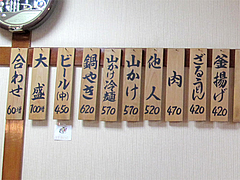 釜揚げ 420
ざるうどん 420
肉 470
他人 520
山かけ 570
山かけ冷麺 570
鍋やき 620
ビール(中) 450
大盛 100増
合わせ 60増